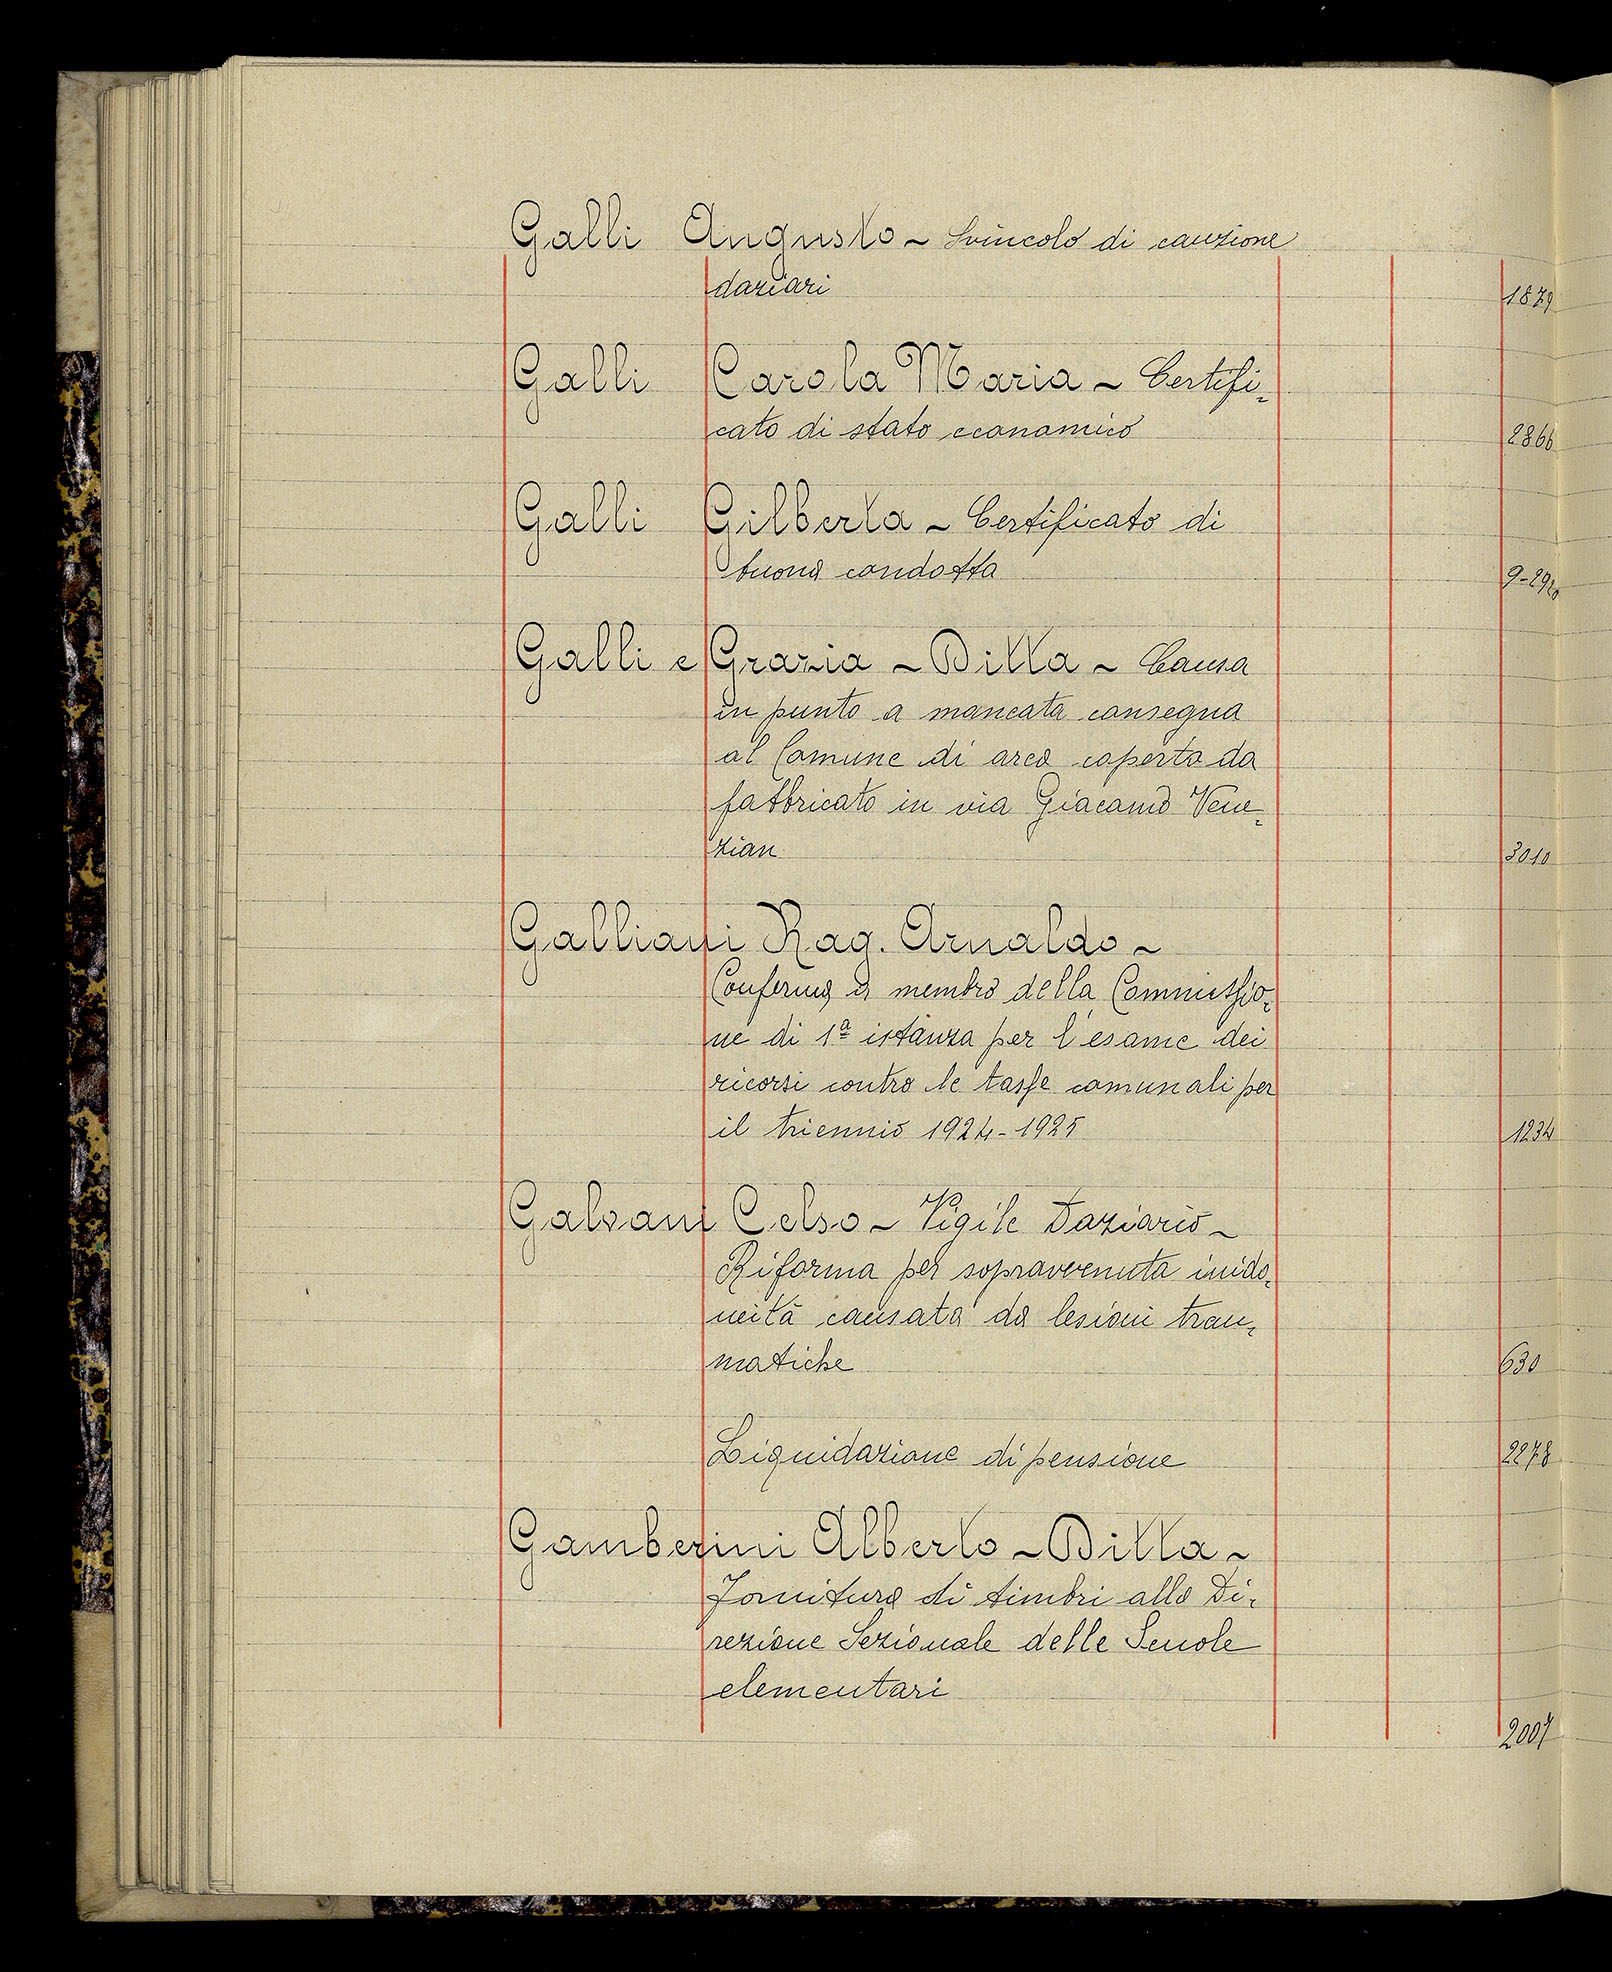 Galli Augusto ~ Svincolo di cauzione
daziari 1879
Galli Carola Maria ~ Certifi=
cato di stato economico 2866
Galli Gilberta ~ Certificato di
buona condotta
Galli e Grazia ~ Ditta ~ Causa
in punto a mancata consegna
al Comune di area coperta da
fabbricato in via Giacomo Vene=
zian 3010
Galliani Rag. Arnaldo ~
Conferma a membro della Commissio=
ne di 1ª istanza per l'esame dei
ricorsi contro le tasse comunali per
il triennio 1924-1925 1234
Galvani Celso ~ Vigile Daziario ~
Riforma per sopravvenuta inido=
neità causata da lesioni trau=
matiche 630
Liquidazione di pensione 2278
Gamberini Alberto ~ Ditta ~
Fornitura di timbri alla Di=
rezione Sezionale delle Scuole
elementari
2007